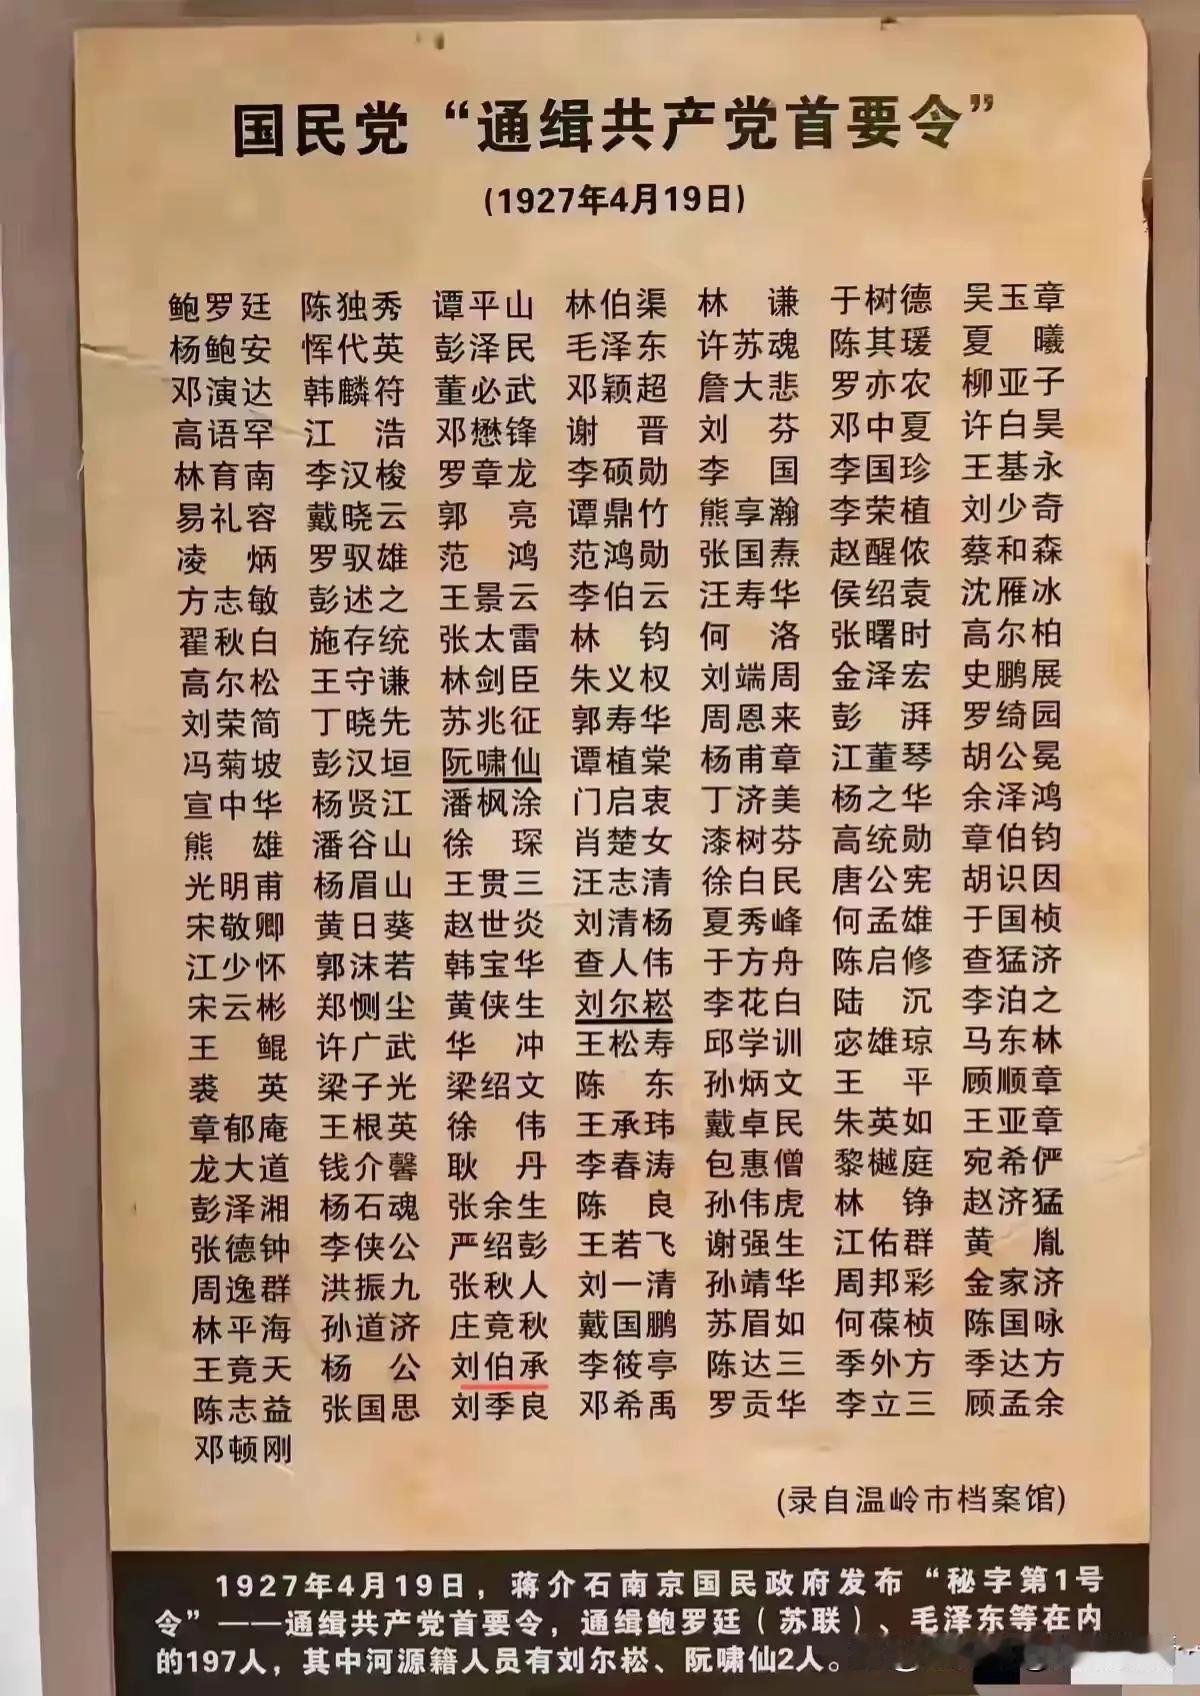 国民党“通缉共产党首要令”
(1927年4月19日)
鲍罗廷 陈独秀 谭平山 林伯渠 林谦 于树德 吴玉章
杨鲍安 恽代英 彭泽民 毛泽东 许苏魂 陈其瑗 夏曦
邓演达 韩麟符 董必武 邓颖超 詹大悲 罗亦农 柳亚子
高语罕 江浩 邓懋锋 谢晋 刘芬 邓中夏 许白昊
林育南 李汉梭 罗章龙 李硕勋 李国 李国珍 王基永
易礼容 戴晓云 郭亮 谭鼎竹 熊享瀚 李荣植 刘少奇
凌炳 罗驭雄 范鸿 范鸿勋 张国焘 赵醒侬 蔡和森
方志敏 彭述之 王景云 李伯云 汪寿华 侯绍袁 沈雁冰
翟秋白 施存统 张太雷 林钧 何洛 张曙时 高尔柏
高尔松 王守谦 林剑臣 朱义权 刘端周 金泽宏 史鹏展
刘荣简 丁晓先 苏兆征 郭寿华 周恩来 彭湃 罗绮园
冯菊坡 彭汉垣 阮啸仙 谭植棠 杨甫章 江董琴 胡公冕
宣中华 杨贤江 潘枫涂 门启衷 丁济美 杨之华 余泽鸿
熊雄 潘谷山 徐琛 肖楚女 漆树芬 高统勋 章伯钧
光明甫 杨眉山 王贯三 汪志清 徐白民 唐公宪 胡识因
宋敬卿 黄日葵 赵世炎 刘清杨 夏秀峰 何孟雄 于国桢
江少怀 郭沫若 韩宝华 查人伟 于方舟 陈启修 查猛济
宋云彬 郑恻尘 黄侠生 刘尔崧 李花白 陆沉 李泊之
王鲲 许广武 华冲 王松寿 邱学训 宓雄琼 马东林
裘英 梁子光 梁绍文 陈东 孙炳文 王平 顾顺章
章郁庵 王根英 徐伟 王承玮 戴卓民 朱英如 王亚章
龙大道 钱介馨 耿丹 李春涛 包惠僧 黎樾庭 宛希俨
彭泽湘 杨石魂 张余生 陈良 孙伟虎 林铮 赵济猛
张德钟 李侠公 严绍彭 王若飞 谢强生 江佑群 黄胤
周逸群 洪振九 张秋人 刘一清 孙靖华 周邦彩 金家济
林平海 孙道济 庄竟秋 戴国鹏 苏眉如 何葆桢 陈国咏
王竟天 杨公 刘伯承 李筱亭 陈达三 季外方 季达方
陈志益 张国思 刘季良 邓希禹 罗贡华 李立三 顾孟余
邓顿刚
(录自温岭市档案馆)
1927年4月19日，蒋介石南京国民政府发布“秘字第1号
令”——通缉共产党首要令，通缉鲍罗廷（苏联）、毛泽东等在内
的197人，其中河源籍人员有刘尔崧、阮啸仙2人。